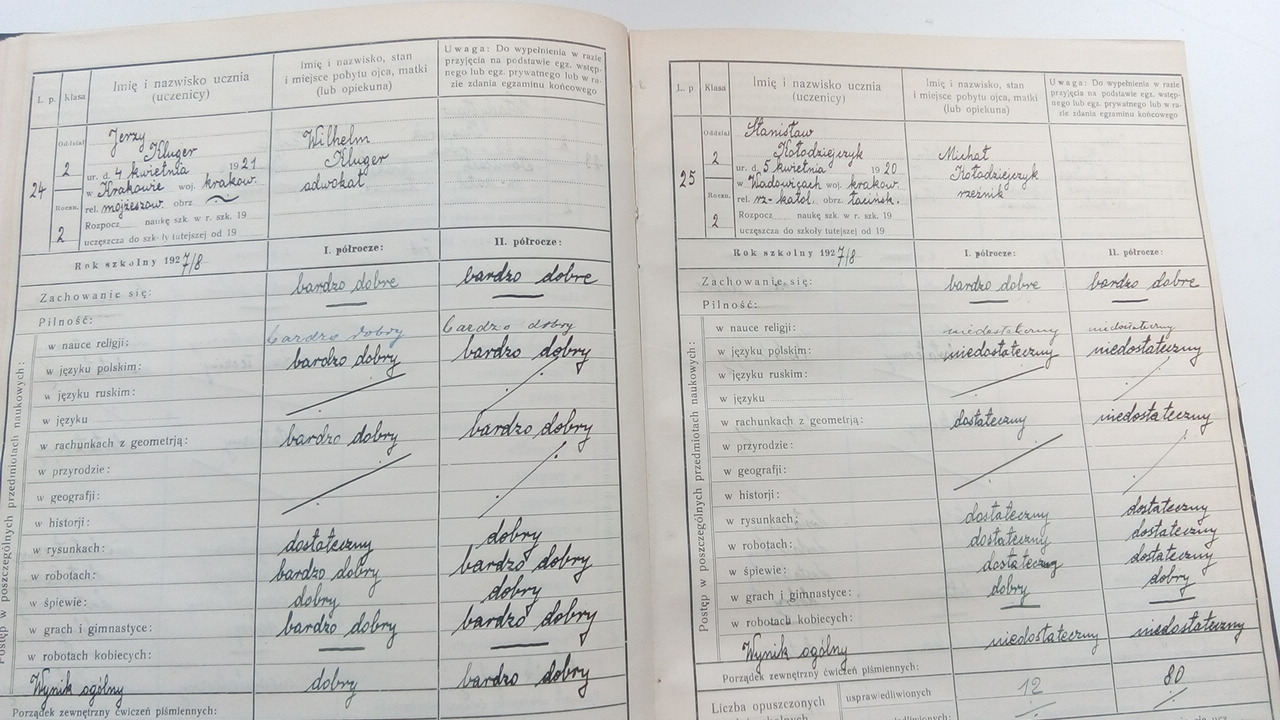 L. p.
Klasa
Imię i nazwisko ucznia
(uczenicy)
Imię i nazwisko, stan
i miejsce pobytu ojca, matki
(lub opiekuna)
Uwaga: Do wypełnienia w razie
przyjęcia na podstawie egz. wstęp-
nego lub egz. prywatnego lub w ra-
zie zdania egzaminu końcowego
24
Oddział
2
Roczn.
2
Jerzy
Kluger
ur. d. 4 kwietnia 1921
w Krakowie woj. krakow.
rel. mojżeszow. obrz.
Rozpocz. naukę szk. w r. szk. 19
uczęszcza do szkoły tutejszej od 19
Wilhelm
Kluger
adwokat
Rok szkolny 1927/8
I. półrocze:
II. półrocze:
Zachowanie się: bardzo dobre bardzo dobre
Pilność:
Postęp w poszczególnych przedmiotach naukowych:
w nauce religji: bardzo dobry bardzo dobry
w języku polskim: bardzo dobry bardzo dobry
w języku ruskim:
w języku
w rachunkach z geometrją: bardzo dobry bardzo dobry
w przyrodzie:
w geografji:
w historji:
w rysunkach: dostateczny dobry
w robotach: bardzo dobry bardzo dobry
w śpiewie: dobry dobry
w grach i gimnastyce: bardzo dobry bardzo dobry
w robotach kobiecych:
Wynik ogólny dobry bardzo dobry
Porządek zewnętrzny ćwiczeń piśmiennych:
L. p
Klasa
Imię i nazwisko ucznia
(uczenicy)
Imię i nazwisko, stan
i miejsce pobytu ojca, matki
(lub opiekuna)
Uwaga: Do wypełnienia w razie
przyjęcia na podstawie egz. wstęp-
nego lub egz. prywatnego lub w ra-
zie zdania egzaminu końcowego
25
Oddział
2
Roczn.
2
Stanisław
Kołodziejczyk
ur. d. 5 kwietnia 1920
w Wadowicach woj. krakow.
rel. rz-katol. obrz. łacińsk.
Rozpocz. naukę szk. w r. szk. 19
uczęszcza do szkoły tutejszej od 19
Michał
Kołodziejczyk
rzeźnik
Rok szkolny 1927/8
I. półrocze:
II. półrocze:
Zachowanie się: bardzo dobre bardzo dobre
Pilność:
Postęp w poszczególnych przedmiotach naukowych:
w nauce religji: niedostateczny niedostateczny
w języku polskim: niedostateczny niedostateczny
w języku ruskim:
w języku
w rachunkach z geometrją: dostateczny niedostateczny
w przyrodzie:
w geografji:
w historji:
w rysunkach: dostateczny dostateczny
w robotach: dostateczny dostateczny
w śpiewie: dostateczny dostateczny
w grach i gimnastyce: dobry dobry
w robotach kobiecych:
Wynik ogólny niedostateczny niedostateczny
Porządek zewnętrzny ćwiczeń piśmiennych:
Liczba opuszczonych usprawiedliwionych 12 80